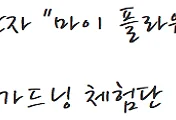 "마이 플라
가드닝 체험단